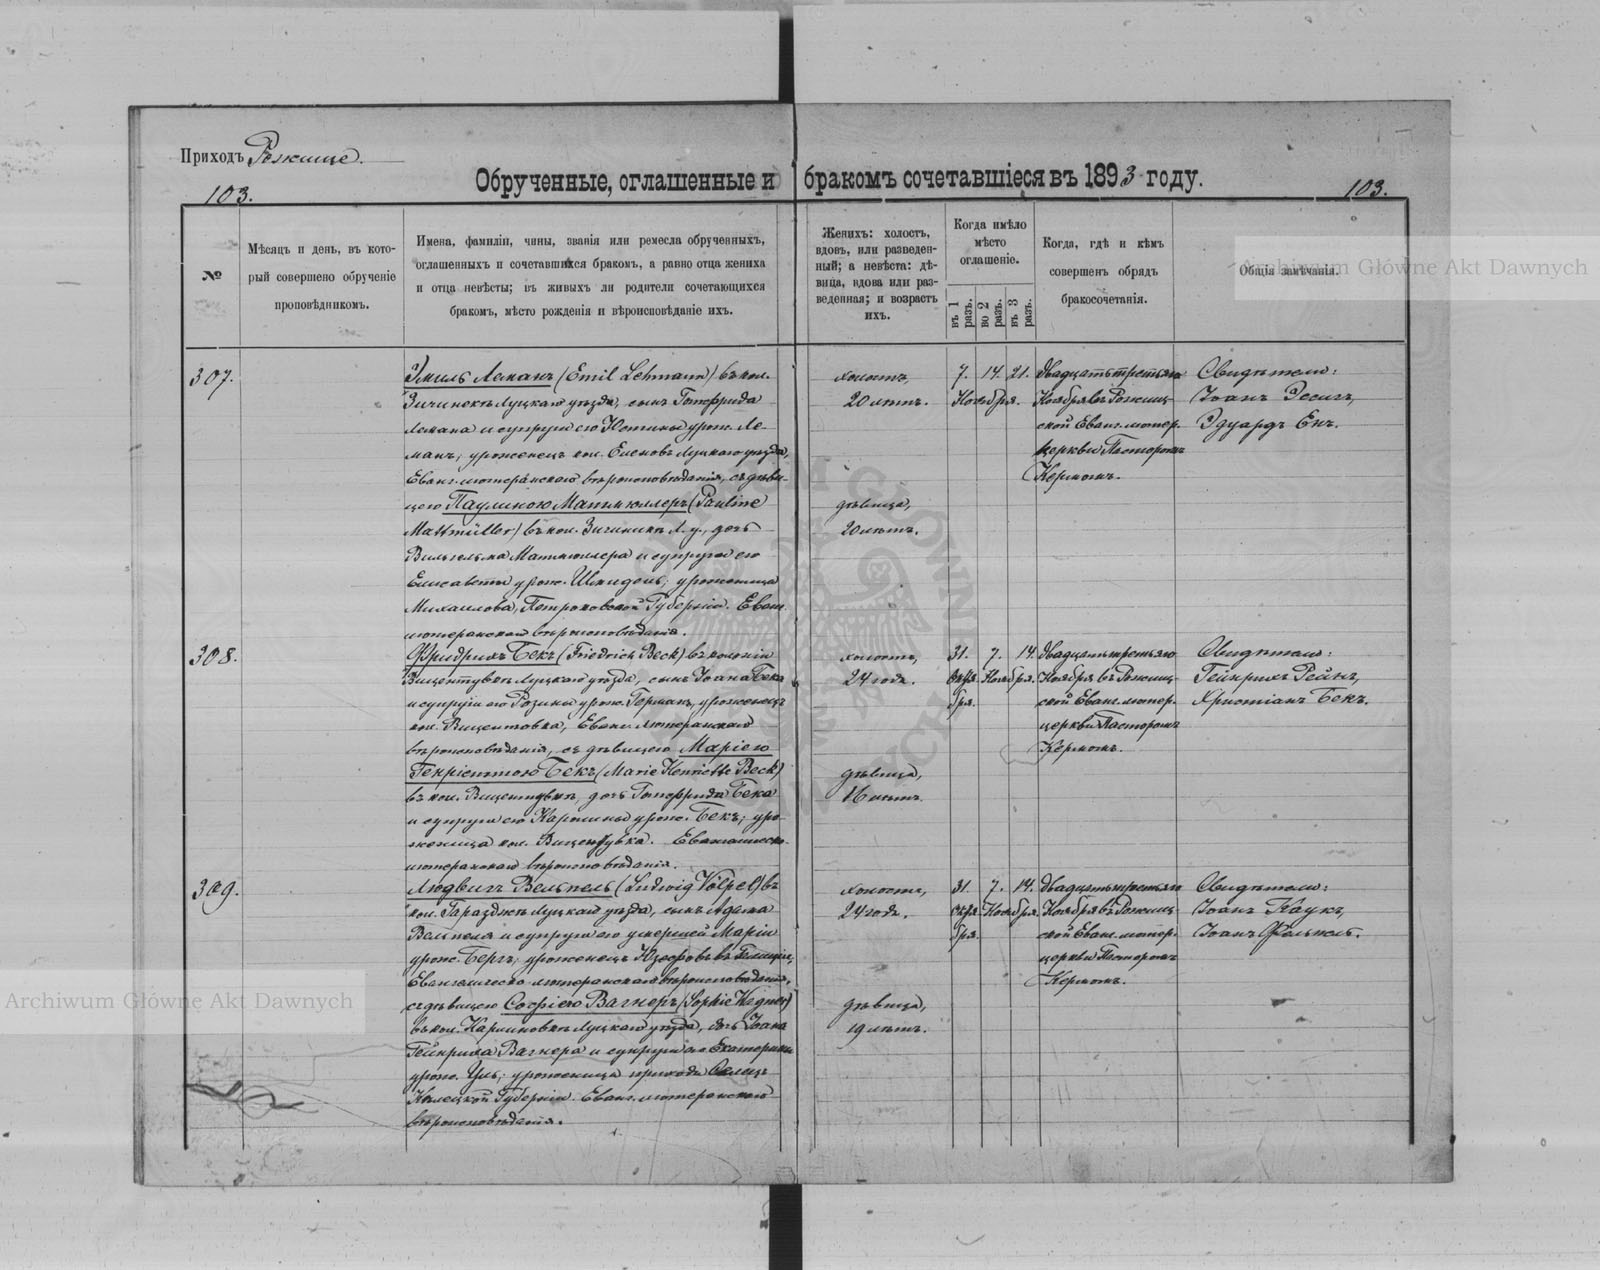 Приходъ Рожище.
103.
Обрученные, оглашенные и бракомъ сочетавшіеся въ 1893 году.
103.
№
Мѣсяцъ и день, въ кото-
рый совершено обрученіе
проповѣдникомъ.
Имена, фамиліи, чины, званія или ремесла обрученныхъ,
оглашенныхъ и сочетавшихся бракомъ, а равно отца жениха
и отца невѣсты; въ живыхъ ли родители сочетающихся
бракомъ, мѣсто рожденія и вѣроисповѣданіе ихъ.
Женихъ: холостъ,
вдовъ, или разведен-
ный; а невѣста: дѣ-
вица, вдова или раз-
веденная; и возрастъ
ихъ.
Когда имѣло
мѣсто
оглашеніе.
въ 1 разъ.
во 2 разъ.
въ 3 разъ.
Когда, гдѣ и кѣмъ
совершенъ обрядъ
бракосочетанія.
Общія замѣчанія.
307.
Эмиль Леманъ (Emil Lehmann) въ кол.
Луцкаго уѣзда, сынъ Готфрида
Лемана и супруги его Юстины урож. Ле-
манъ; уроженецъ кол. Луцкаго уѣзда,
Еванг. лютеранскаго вѣроисповѣданія, съ дѣви-
цею Паулиною Матмюллеръ (Pauline
Mattmüller) въ кол. Л. у., дочь
Вильгельма Матмюллера и супруги его
Елисаветы урож. уроженица
Михайлова, Петроковской Губерніи. Еванг.
лютеранскаго вѣроисповѣданія.
холостъ,
20 лѣтъ.
дѣвица,
20 лѣтъ.
7. 14. 21.
Ноября.
Двадцать третьяго
Ноября въ Рожищ-
ской Еванг. лютер.
церкви Пасторомъ
Кермомъ.
Свидѣтели:
Іоанъ
Эдуардъ
308.
Фридрихъ Бекъ (Friedrich Beck) въ колоніи
Вицентувкѣ Луцкаго уѣзда, сынъ Іоана Бека
и супруги его Розины урож. Германъ, уроженецъ
кол. Вицентовка, Еванг. Лютеранскаго
вѣроисповѣданія, съ дѣвицею Маріею
Генріеттою Бекъ (Marie Henriette Beck)
въ кол. Вицентувкѣ, дочь Готфрида Бека
и супруги его Каролины урож. Бекъ; уро-
женица кол. Вицентувка. Евангелическо-
лютеранскаго вѣроисповѣданія.
холостъ,
24 годъ.
дѣвица,
16 лѣтъ.
31. 7. 14.
Октя- Ноября.
бря.
Двадцать третьяго
Ноября въ Рожищ-
ской Еванг. лютер.
церкви Пасторомъ
Кермомъ.
Свидѣтели:
Гейнрихъ Рейнъ,
Христіанъ Бекъ.
309.
Людвигъ Вельпель (Ludwig Völpel) въ
кол. Гараздже Луцкаго уѣзда, сынъ Адама
Вельпеля и супруги его умершей Маріи
урож. Бергъ; уроженецъ Юзефовъ въ Галиціи,
Евангелическо-лютеранскаго вѣроисповѣданія,
съ дѣвицею Софіею Вагнеръ (Sophie Wagner)
въ кол. Каролиновкѣ Луцкаго уѣзда, дочь Іоана
Гейнриха Вагнера и супруги его Екатерины
урож. уроженица прихода
Кѣлецкой Губерніи. Еванг. лютеранскаго
вѣроисповѣданія.
холостъ,
24 годъ.
дѣвица,
19 лѣтъ.
31. 7. 14.
Октя- Ноября.
бря.
Двадцать третьяго
Ноября въ Рожищ-
ской Еванг. лютер.
церкви Пасторомъ
Кермомъ.
Свидѣтели:
Іоанъ Каукъ,
Іоанъ Фельпель.
Archiwum Główne Akt Dawnych
Archiwum Główne Akt Dawnych